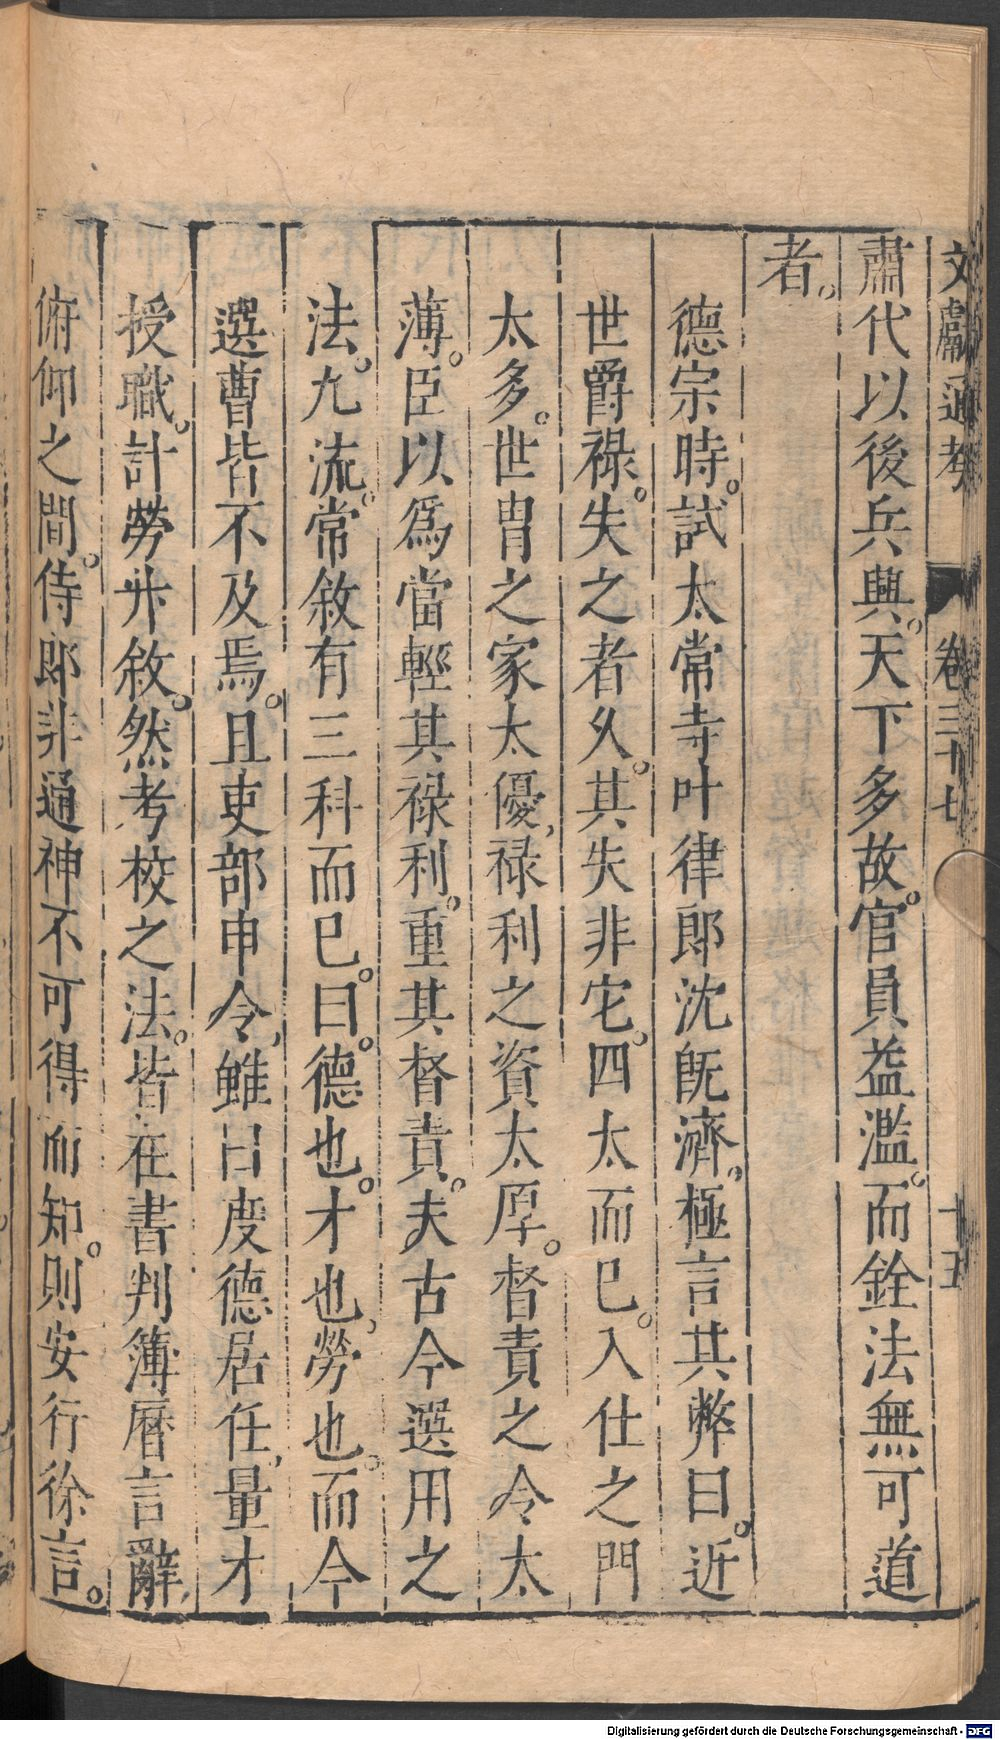 文獻通考 卷三十七 十五
肅代以後兵興。天下多故。官員益濫。而銓法無可道
者。
德宗時。試太常寺叶律郎沈旣濟。極言其弊曰。近
世爵祿。失之者久。其失非它。四太而已。入仕之門
太多。世胄之家太優，祿利之資太厚。督責之令太
薄。臣以爲當輕其祿利。重其督責。夫古今選用之
法。九流。常敘有三科而已。曰。德也。才也，勞也。而今
選曹皆不及焉。且吏部申令，雖曰度德居任，量才
授職，計勞升敘。然考校之法。皆在書判簿曆言辭，
俯仰之間。侍郎非通神不可得而知。則安行徐言。
Digitalisierung gefördert durch die Deutsche Forschungsgemeinschaft - DFG